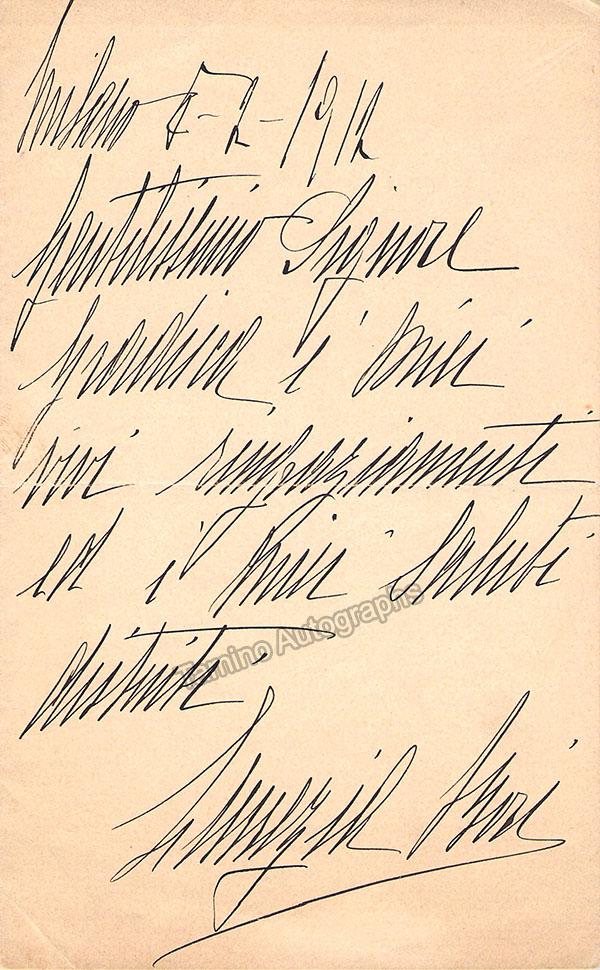 Milano 5-2-1912
Gentilissimo Signore
Gradisca i miei
vivi ringraziamenti
ed i miei saluti
distinti.
Tamino Autographs
Lucrezia Bori